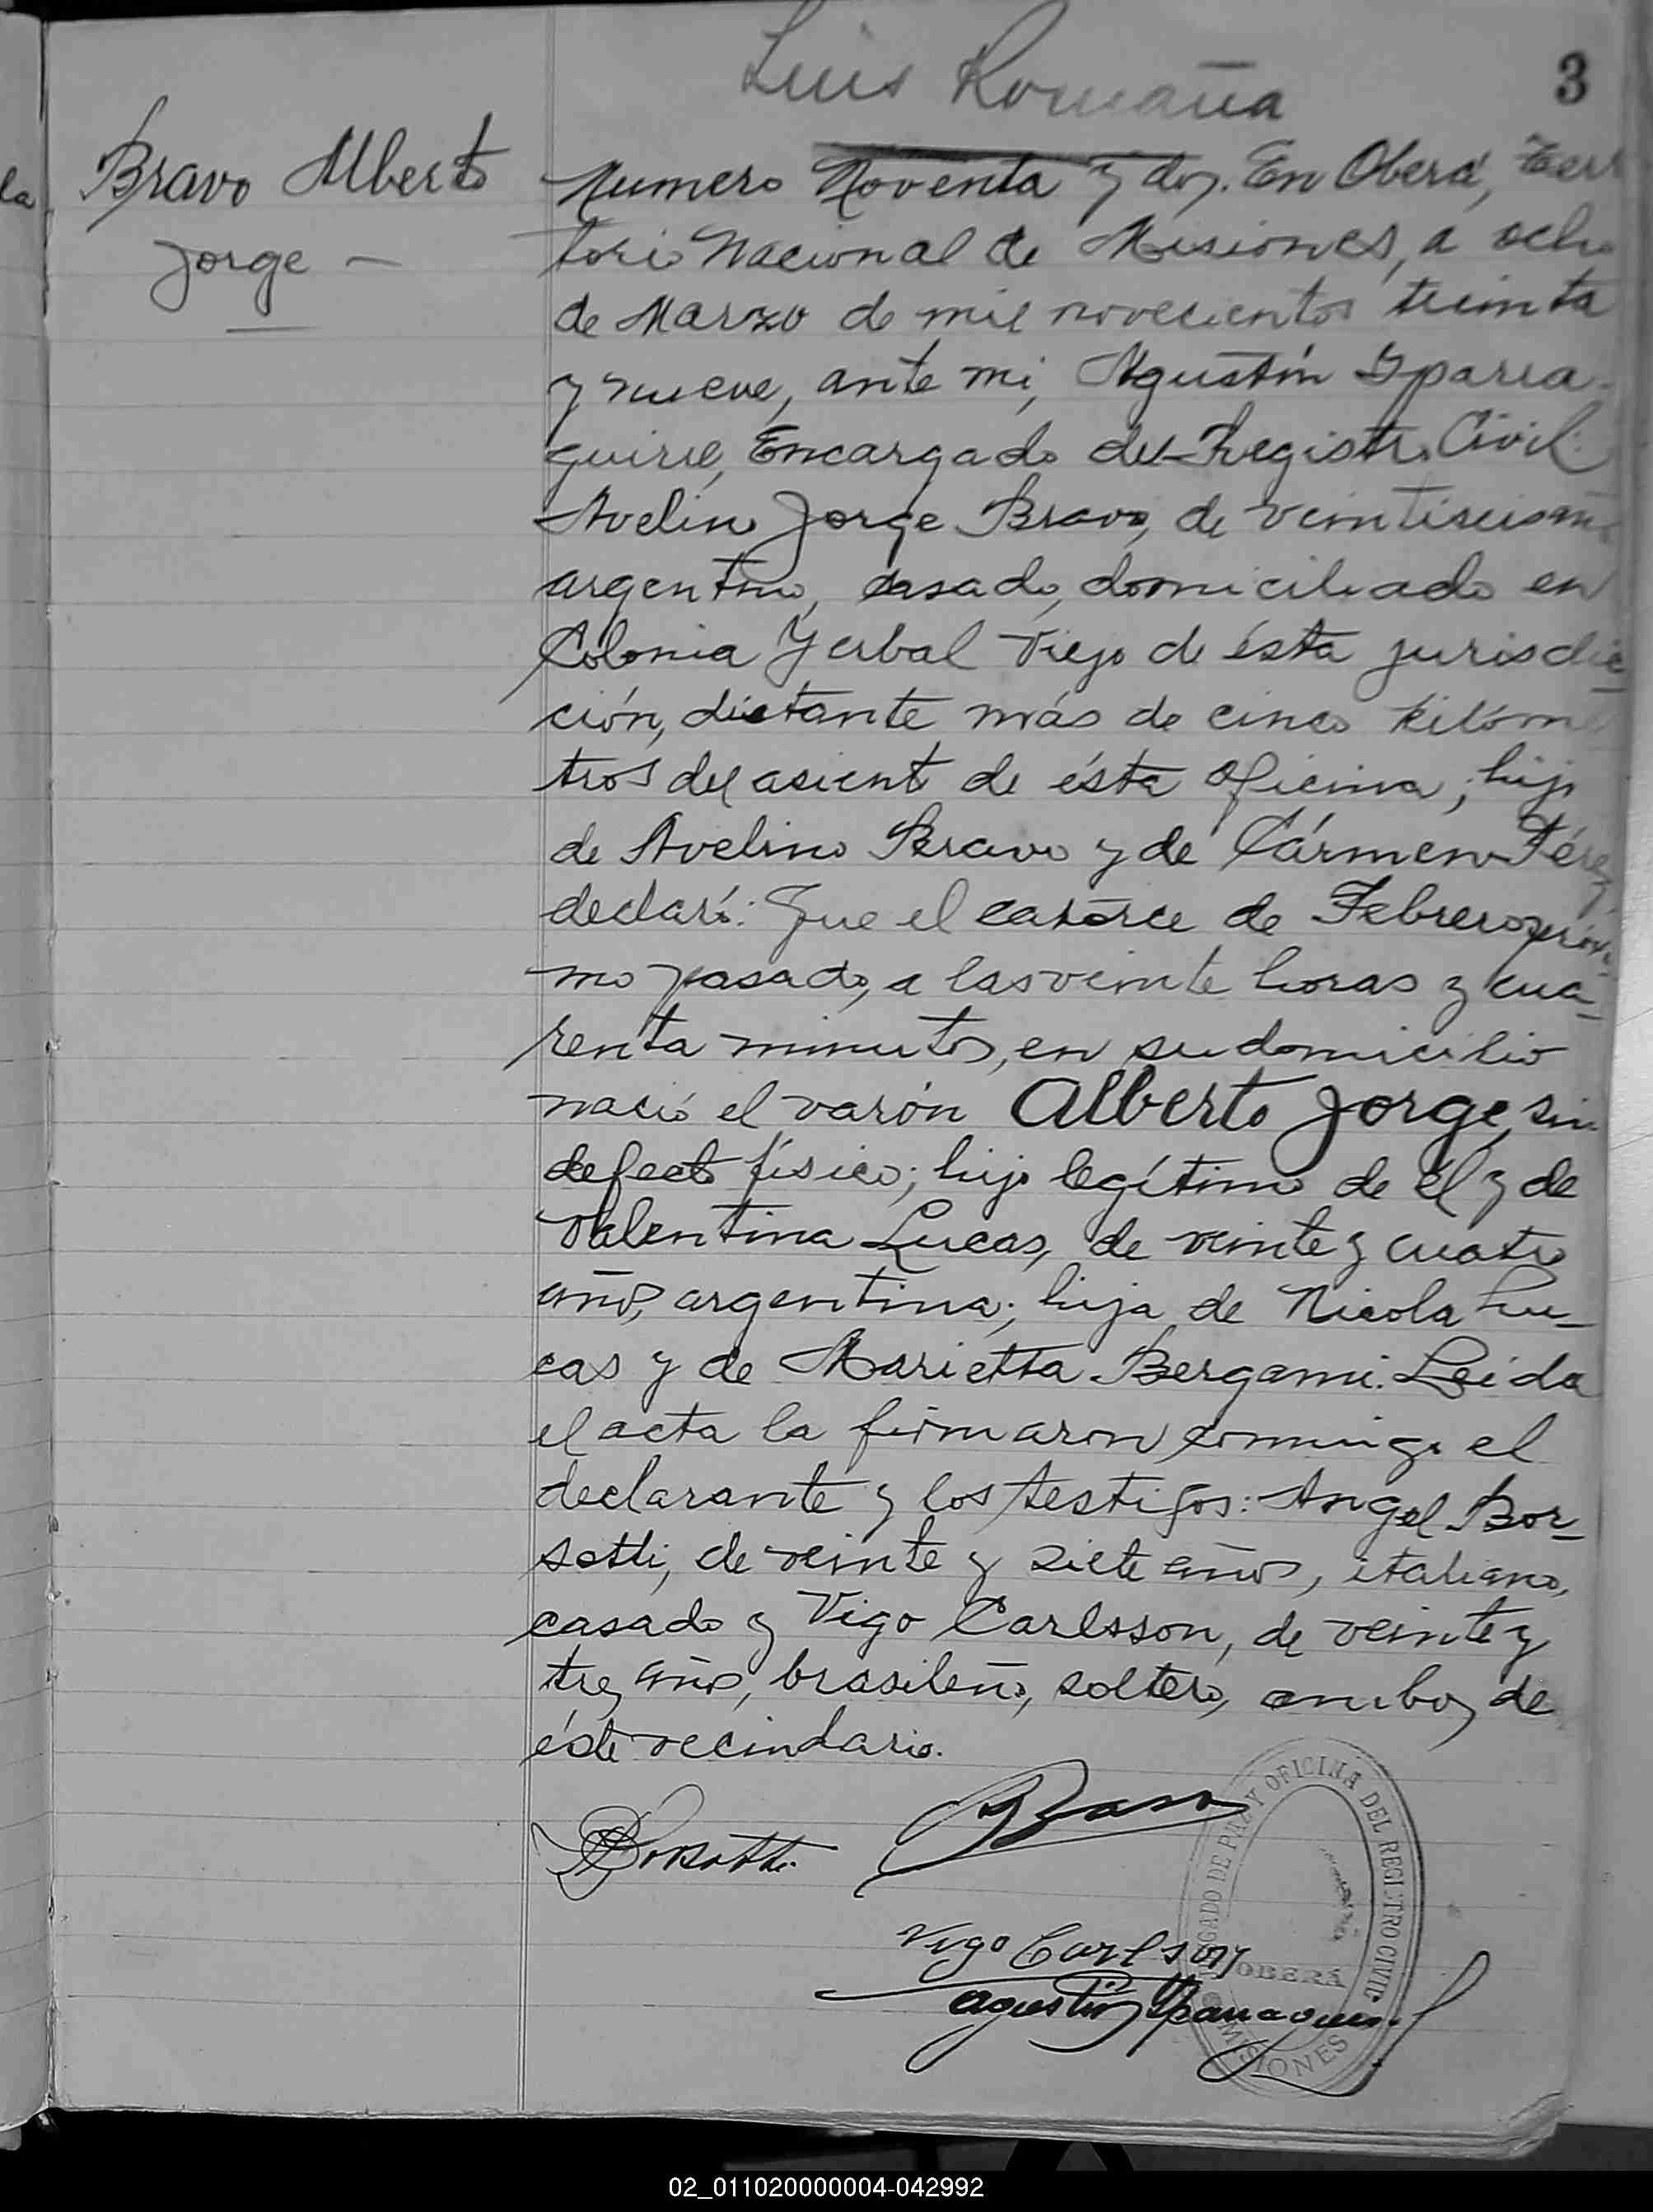 Luis Romaña
3
Bravo Alberto
Jorge —
Numero Noventa y dos. En Oberá, Terri
torio Nacional de Misiones, a ocho
de Marzo de mil novecientos treinta
y nueve, ante mí, Agustín Yparra-
guirre, Encargado del Registro Civil
Avelino Jorge Bravo, de veintiseis años
argentino, casado, domiciliado en
Colonia Yerbal Viejo de ésta jurisdic
ción, distante más de cinco kilóme
tros del asiento de ésta oficina; hijo
de Avelino Bravo y de Cármen Pérez
declaró: Que el catorce de Febrero próxi-
mo pasado, a las veinte horas y cua-
renta minutos, en su domicilio
nació el varón Alberto Jorge, sin
defecto físico; hijo legítimo de él y de
Valentina Lucas, de veinte y cuatro
años, argentina; hija de Nicola Lu-
cas y de Marietta Bergami. Leida
el acta la firmaron conmigo el
declarante y los testigos: Angel Bor-
sotti, de veinte y siete años, italiano,
casado y Vigo Carlsson, de veinte y
tres años, brasileño, soltero, ambos de
éste vecindario.
Bravo
Borsotti
Vigo Carlson
Agustín Yparraguirre
JUZGADO DE PAZ Y OFICINA DEL REGISTRO CIVIL
OBERÁ
MISIONES
02_011020000004-042992